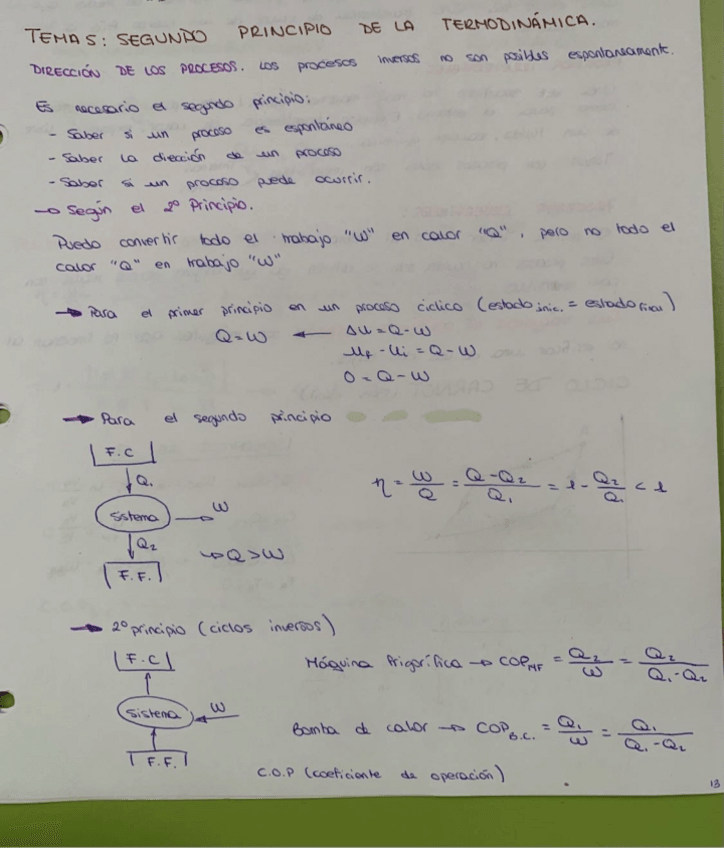 TEMA 5: SEGUNDO PRINCIPIO DE LA TERMODINÁMICA.
DIRECCIÓN DE LOS PROCESOS. Los procesos inversos no son posibles espontaneamente.
Es necesario el segundo principio:
- Saber si un proceso es espontáneo
- Saber la diección de un proceso
- Saber si un proceso puede ocurrir.
→ Según el 2º Principio.
Puedo convertir todo el trabajo "W" en calor "Q", pero no todo el
calor "Q" en trabajo "W"
→ Para el primer principio en un proceso cíclico (estado inic. = estado final)
Q = W ← ΔU = Q - W
U_f - U_i = Q - W
0 = Q - W
→ Para el segundo principio
F.C
Q₁
Sistema → W
Q₂
F.F.
→ Q > W
η = W/Q = (Q - Q₂)/Q₁ = 1 - Q₂/Q₁ < 1
→ 2º principio (ciclos inversos)
F.C
Sistema ← W
F.F.
Máquina frigorífica → COP_MF = Q₂/W = Q₂/(Q₁ - Q₂)
Bomba de calor → COP_B.C. = Q₁/W = Q₁/(Q₁ - Q₂)
C.O.P (coeficiente de operación)
13